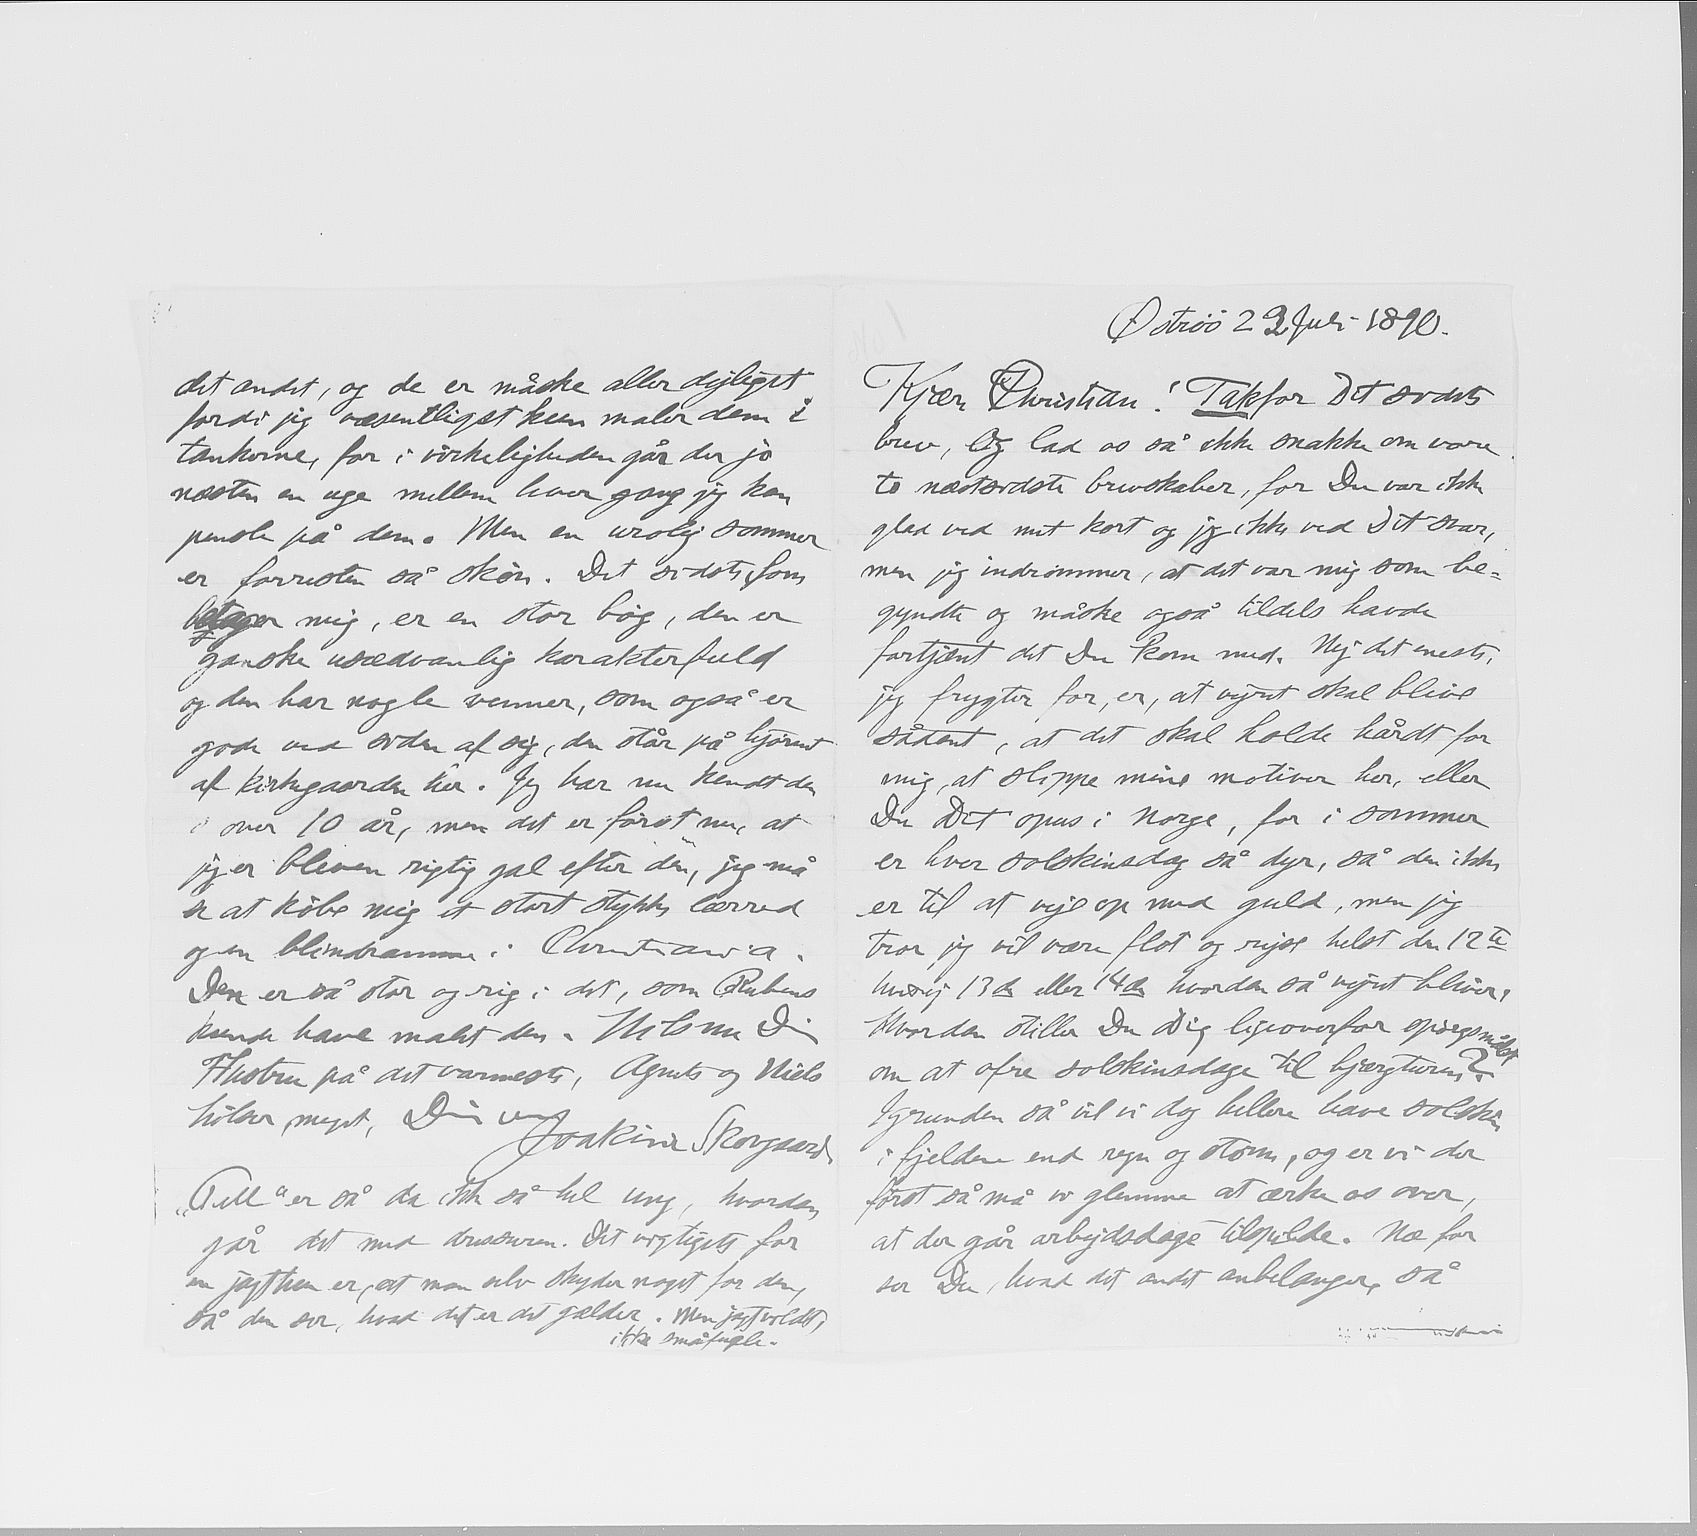 Østrøö 23 Juli 1890.
Kjære Christian! Tak for Dit sidste
brev, Og lad os så ikke snakke om vore
to næstsidste brevskaber, for Du var ikke
glad ved mit kort og jeg ikke ved Dit svar,
men jeg indrømmer, at det var mig som be=
gyndte og måske også tildels havde
fortjent det Du kom med. Nej det meste,
jeg frygter for, er, at vejret skal blive
sådant, at det skal holde hårdt for
mig, at slippe mine motiver her, eller
Du Dit opus i Norge, for i sommer
er hver solskinsdag så dyr, så den ikke
er til at veje op med guld, men jeg
tror jeg vil være flot og rejse helst den 12te
hvis ej 13de eller 14de hvordan så vejret bliver,
Hvordan stiller Du Dig ligeoverfor spørgsmålet
om at ofre solskinsdage til bjærgturen?
Igrunden så vil vi dog hellere have solskin
i fjeldene end regn og storm, og er vi der
først så må vi glemme at ærke os over,
at der går arbejdsdage tilspilde. Næ for
ser Du, hvad det andet anbelanger, så
det andet, og de er måske aller dejligst
fordi jeg væsentligst kun maler dem i
tankerne, for i virkeligheden går der jo
næsten en uge mellem hver gang jeg kan
pensle på dem. Men en urolig sommer
er forresten så skøn. Det sidste, som
betager mig, er en stor bøg, den er
ganske usædvanlig karakterfuld
og den har nogle venner, som også er
gode ved siden af sig, den står på hjørnet
af kirkegaarden her. Jeg har nu kendt den
i over 10 år, men det er først nu, at
jeg er bleven rigtig gal efter den, jeg må
se at købe mig et stort stykke lærred
og en blindramme i Christiania.
Den er så stor og rig i det, som Rubens
kunde have malt den. Hils nu Din
Hustru på det varmeste, Agnete og Niels
hilser meget, Din ven
Joakim Skovgaard
„Tell“ er så da ikke så hel ung, hvordan
går det med dressuren. Det vigtigste for
en jagthun er, at man selv skyder noget for den,
så den ser, hvad det er det gælder. Men jagtvildt,
ikke småfugle.